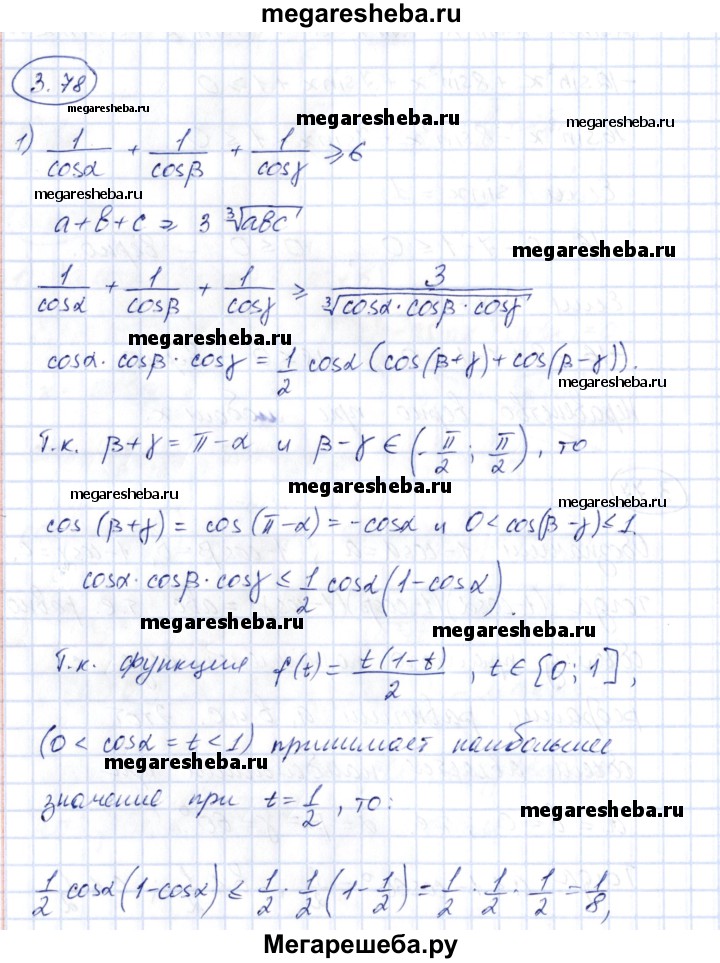 megaresheba.ru
3.78
megaresheba.ru
1) 1/cosα + 1/cosβ + 1/cosγ ≥ 6
megaresheba.ru
megaresheba.ru
megaresheba.ru
a+b+c ≥ 3 ∛abc
megaresheba.ru
1/cosα + 1/cosβ + 1/cosγ ≥ 3/∛cosα·cosβ·cosγ
megaresheba.ru
cosα·cosβ·cosγ = 1/2 cosα(cos(β+γ)+cos(β-γ)).
megaresheba.ru
Т.к. β+γ = π-α и β-γ ∈ (-π/2; π/2), то
megaresheba.ru
megaresheba.ru
megaresheba.ru
cos(β+γ) = cos(π-α) = -cosα и 0<cos(β-γ)≤1.
cosα·cosβ·cosγ ≤ 1/2 cosα(1-cosα).
megaresheba.ru
megaresheba.ru
Т.к. функция f(t) = t(1-t)/2, t∈[0;1],
(0 < cosα = t < 1) принимает наибольшее
megaresheba.ru
значение при t = 1/2, то:
megaresheba.ru
1/2 cosα(1-cosα) ≤ 1/2 · 1/2 (1-1/2) = 1/2 · 1/2 · 1/2 = 1/8,
Мегарешеба.ру